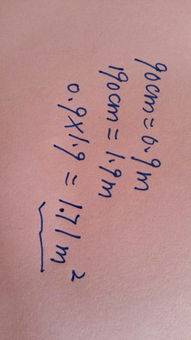 90cm = 0.9m
190cm = 1.9m
0.9x1.9 = 1.71m²